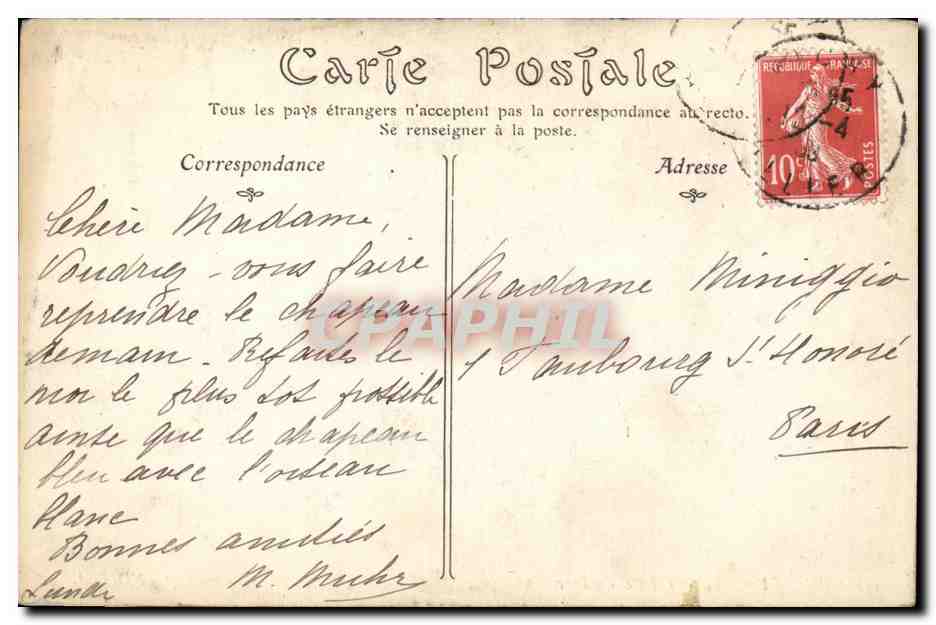 Carte Postale
Tous les pays étrangers n'acceptent pas la correspondance au recto.
Se renseigner à la poste.
Correspondance
Adresse
REPUBLIQUE FRANÇAISE
10c
POSTES
Chère Madame,
Voudriez-vous faire
reprendre le chapeau
demain. Refaites le
moi le plus tot possible
ainsi que le chapeau
bleu avec l'oiseau
blanc
Bonnes amitiés
M. Muhr
Lundi
Madame Miniggio
1 Faubourg St Honoré
Paris
CPAPHIL